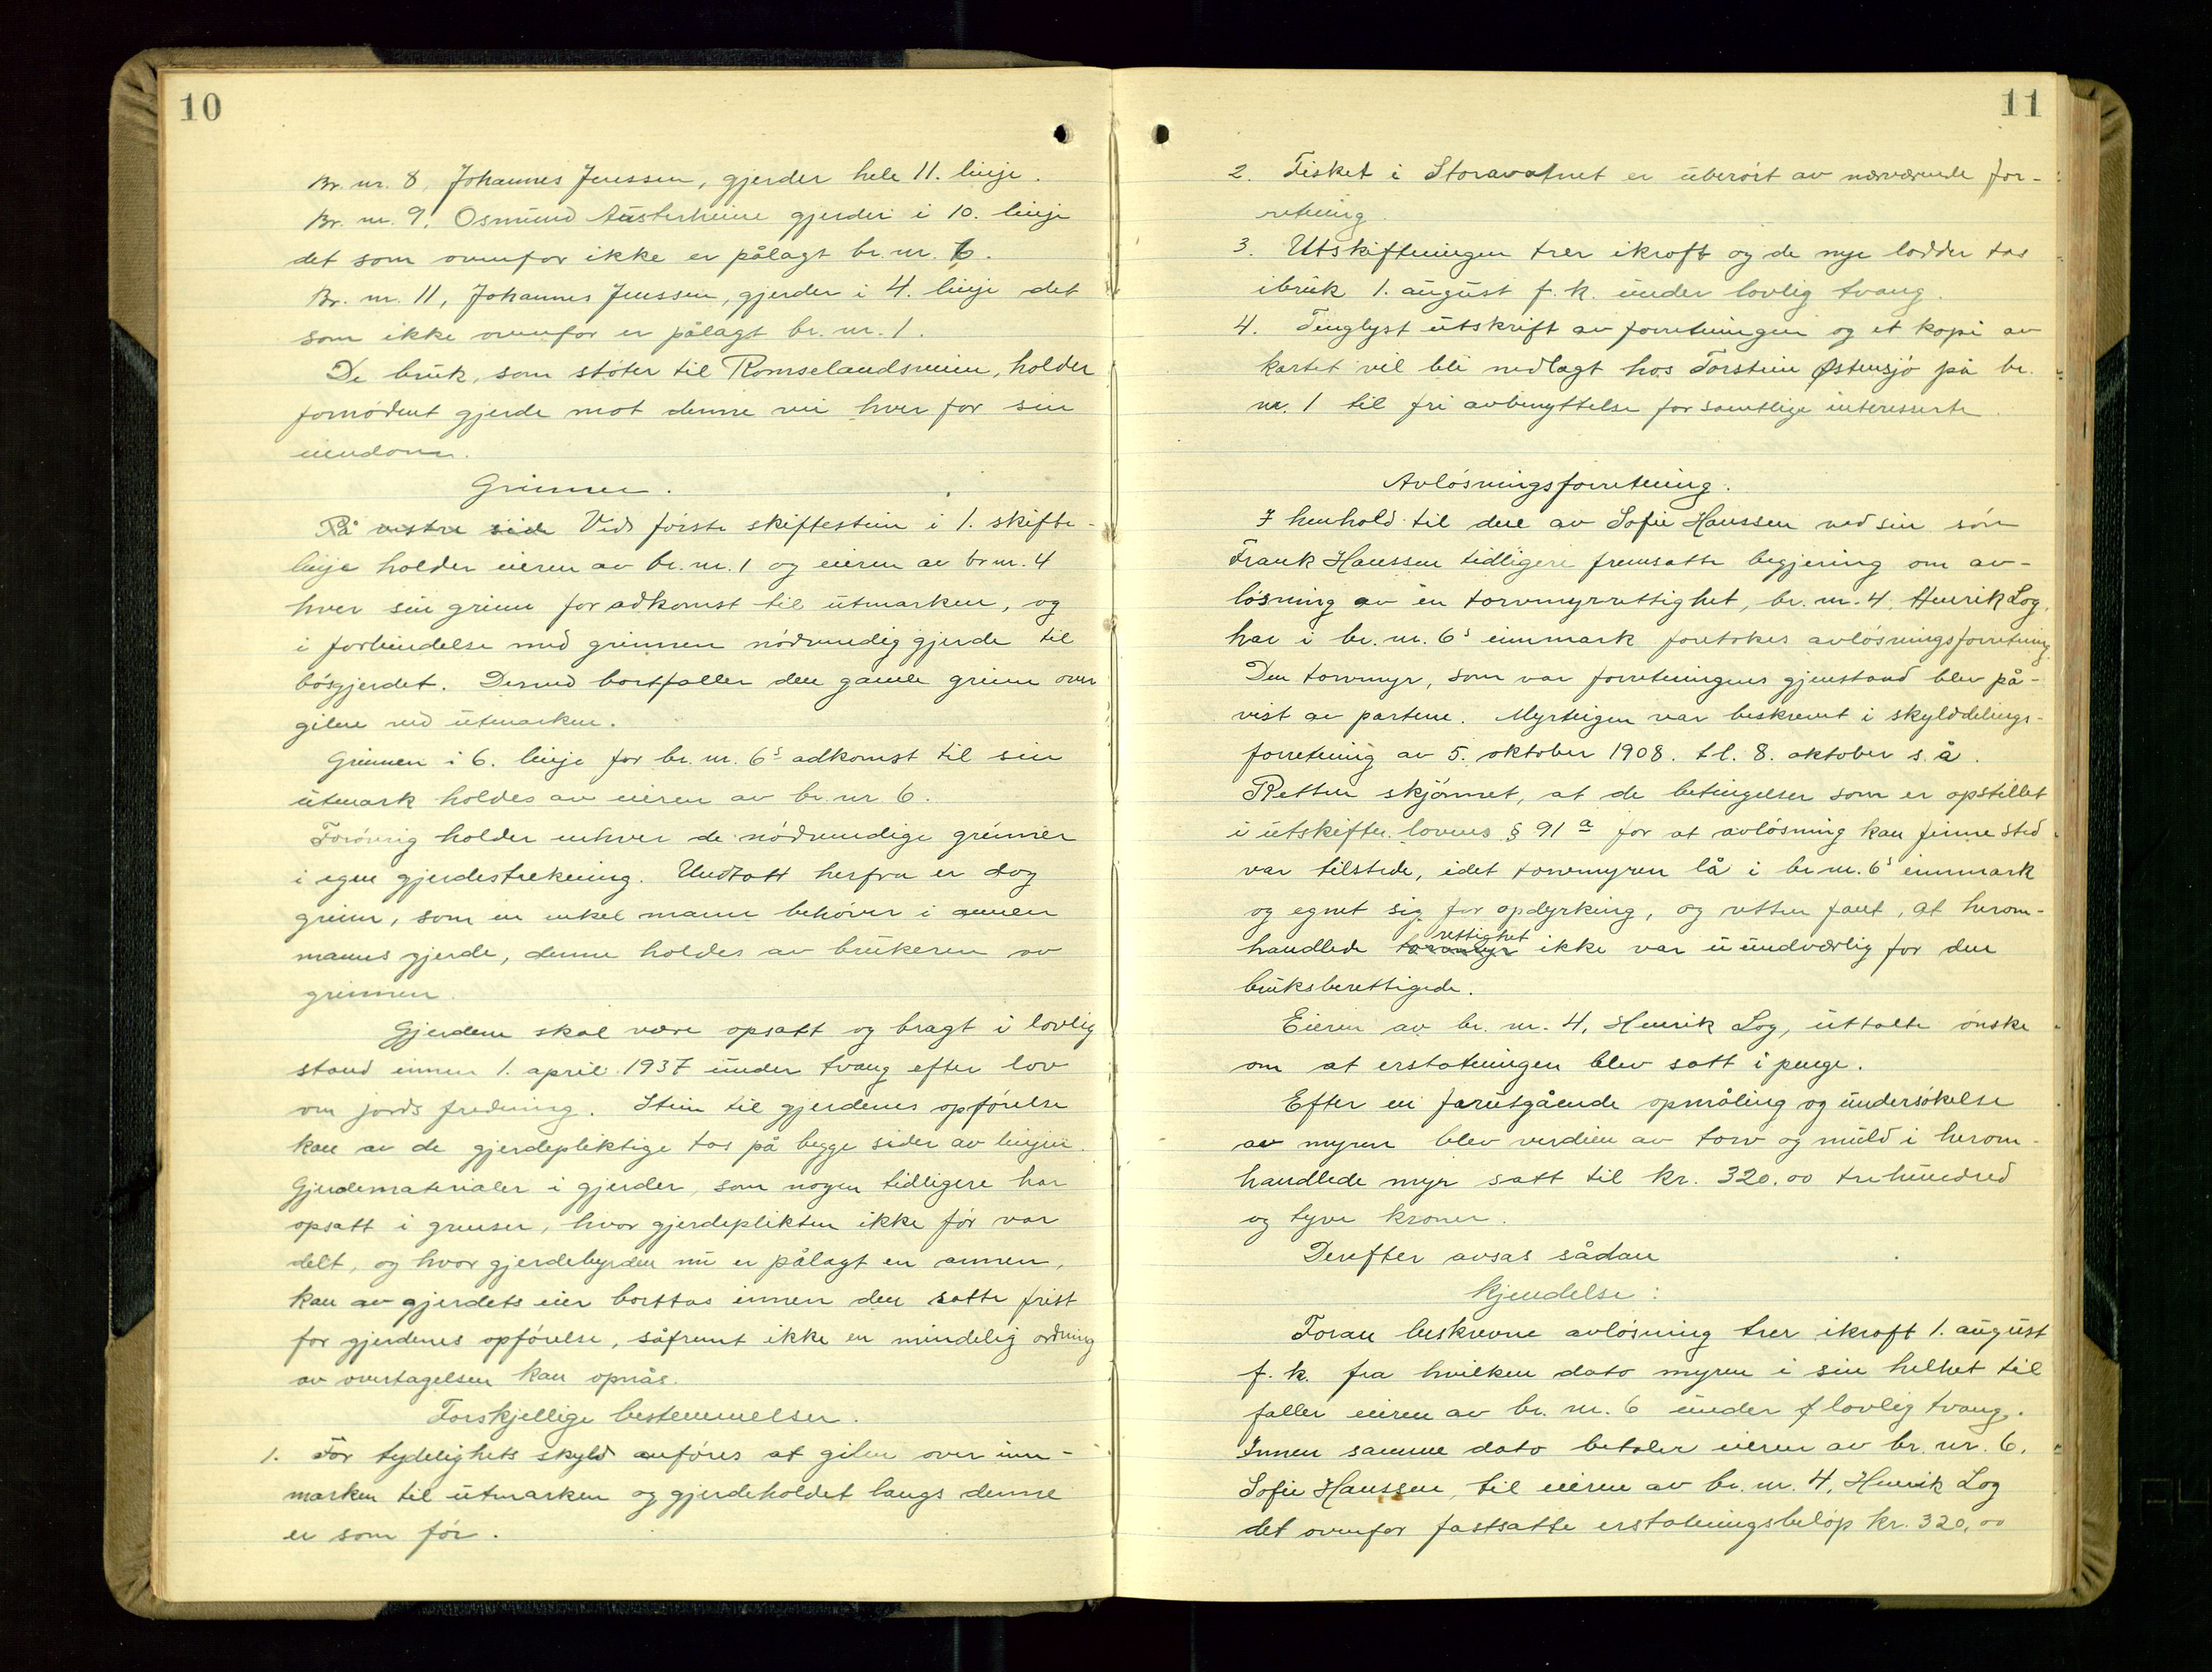 10
Br. nr. 8, Johannes Jenssen, gjerder hele 11. linje.
Br. nr. 9, Osmund Austerheim gjerder i 10. linje
det som ovenfor ikke er pålagt br. nr. 6.
Br. nr. 11, Johannes Jenssen, gjerder i 4. linje det
som ikke ovenfor er pålagt br. nr. 1.
De bruk, som støter til Romselandsveien, holder
fornødent gjerde mot denne vei hver for sin
eiendom.
Grinner.
På vestre side Ved første skiftestein i 1. skifte-
linje holder eieren av br. nr. 1 og eieren av br nr. 4
hver sin grinn for adkomst til utmarken, og
i forbindelse med grinnen nødvendig gjerde til
bøsgjerdet. Derved bortfaller den gamle grinn over
gilen ved utmarken.
Grinnen i 6. linje for br. nr. 6s adkomst til sin
utmark holdes av eieren av br. nr. 6.
Forøvrig holder enhver de nødvendige grinner
i egen gjerdestrekning. Undtatt herfra er dog
grinn, som en enkel mann behøver i annen
manns gjerde, denne holdes av brukeren av
grinnen.
Gjerdene skal være opsatt og bragt i lovlig
stand innen 1. april 1937 under tvang efter lov
om jords fredning. Stein til gjerdenes opførelse
kan av de gjerdepliktige tas på begge sider av linjen.
Gjerdematerialer i gjerder, som nogen tidligere har
opsatt i grenser, hvor gjerdeplikten ikke før var
delt, og hvor gjerdebyrden nu er pålagt en annen,
kan av gjerdets eier borttas innen den satte frist
for gjerdenes opførelse, såfremt ikke en mindelig ordning
av overtagelsen kan opnås.
Forskjellige bestemmelser.
1. For tydelighets skyld anføres at gilen over inn-
marken til utmarken og gjerdeholdet langs denne
er som før.
11
2. Fisket i Storavatnet er uberørt av nærværende for-
retning.
3. Utskiftningen trer ikraft og de nye lodder tas
ibruk 1. august f. k. under lovlig tvang.
4. Tinglyst utskrift av forretningen og et kopi av
kartet vil bli nedlagt hos Torstein Østensjø på br.
nr. 1 til fri avbenyttelse for samtlige interesserte.
Avløsningsforretning.
I henhold til den av Sofie Hanssen ved sin søn
Frank Hanssen tidligere fremsatte begjering om av-
løsning av en torvmyrrettighet, br. nr. 4, Henrik Log,
har i br. nr. 6s innmark foretokes avløsningsforretning.
Den torvmyr, som var forretningens gjenstand blev på-
vist av partene. Myrteigen var beskrevet i skylddelings-
forretning av 5. oktober 1908. tl. 8. oktober s. å.
Retten skjønnet, at de betingelser som er opstillet
i utskiftn. lovens § 91 a for at avløsning kan finne sted
var tilstede, idet torvmyren lå i br. nr. 6s innmark
og egnet sig for opdyrking, og retten fant, at herom-
handlede torvmyr rettighet ikke var uundværlig for den
bruksberettigede.
Eieren av br. nr. 4, Henrik Log, uttalte ønske
om at erstatningen blev satt i penge.
Efter en forutgående opmåling og undersøkelse
av myren blev verdien av torv og muld i herom-
handlede myr satt til kr. 320.00 trehundred
og tyve kroner.
Derefter avsas sådan
Kjendelse:
Foran beskrevne avløsning trer ikraft 1. august
f. k. fra hvilken dato myren i sin helhet til
faller eieren av br. nr. 6 under lovlig tvang.
Innen samme dato betaler eieren av br. nr. 6,
Sofie Hanssen, til eieren av br. nr. 4, Henrik Log
det ovenfor fastsatte erstatningsbeløp kr. 320,00